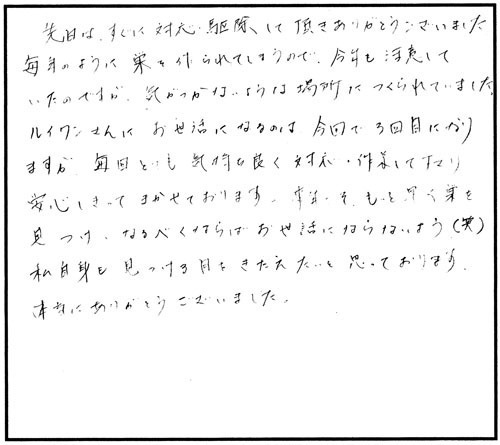 先日は、すぐに対応・駆除して頂きありがとうございました
毎年のように巣を作られてしまうので、今年も注意して
いたのですが、気がつかないような場所につくられていました。
ルイワンさんにお世話になるのは今回で3回目になり
ますが毎回とても気持ち良く対応・作業して下さり
安心しきってまかせております。来年こそ、もっと早く巣を
見つけ、なるべくならばお世話にならないよう(笑)
私自身も見つける目をきたえたいと思っております。
本当にありがとうございました。